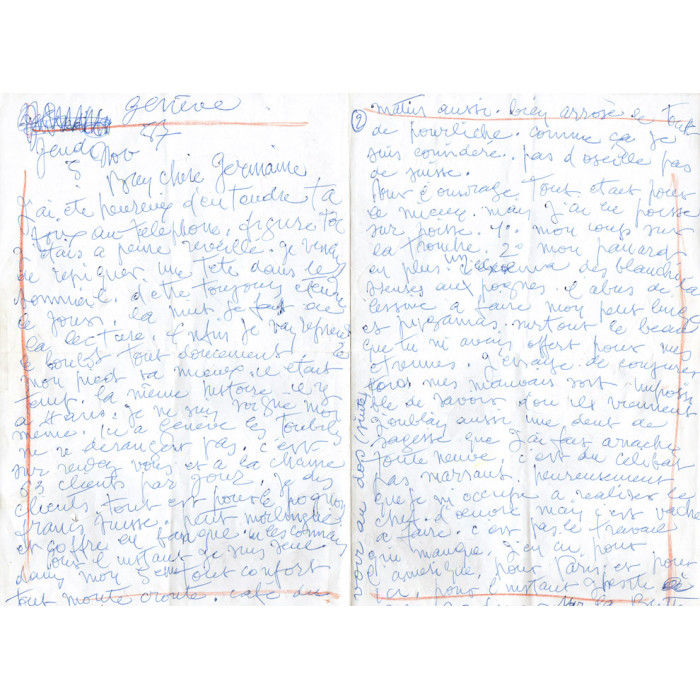 genève
Jeudi Nov 57
5 Bien chère Germaine
J'ai été heureuse d'entendre ta
voix au téléphone, figure toi
j'etais a peine reveillé. je venais
de repiquer une tete dans le
sommeil. d'etre toujours etendue
le jour, la nuit je fais de
la lecture. enfin je vais reprendre
le boulot tout doucement
mon pied va mieux. il etait
tout la même histoire il y
a Paris. je me suis soigné moi
même. ici a genève les toubibs
ne se derangent pas. c'est
sur rendez vous et a la chaine
clients par jour, des
clients tout est pour le pognon
franc suisse. petit
et coffre en banque.
Pour l'instant je suis seule
dans mon tout confort
tout monte croute. café du
② matin aussi. bien arrosé le tout
de pourliche. comme ça je
suis considéré. pas d'oseille pas
de suisse.
Pour l'ouvrage tout etait pour
le mieux. mais j'ai eu poisse
sur poisse. 1° mon coup sur
la tronche. 2° mon panard
en plus un des blanchis
seuses aux pognes. l'abus de la
lessive a faire mon petit linge
et pyjamas. surtout le beau
que tu m'avais offert pour mes
etrennes. j'essaye de conjurer
mes mauvais sort impossi
ble de savoir d'ou ils viennent
j'oubliais aussi une dent de
sagesse que j'ai fait arracher
toute neuve. c'est du celibat
pas marrant. heureusement
que je m'occupe a realiser le
chef d'oeuvre mais c'est vache
a faire. c'est pas le travail
qui manque. j'en ai pour
l'amerique, pour Paris et pour
ici, pour l'instant
voir au dos (suite)